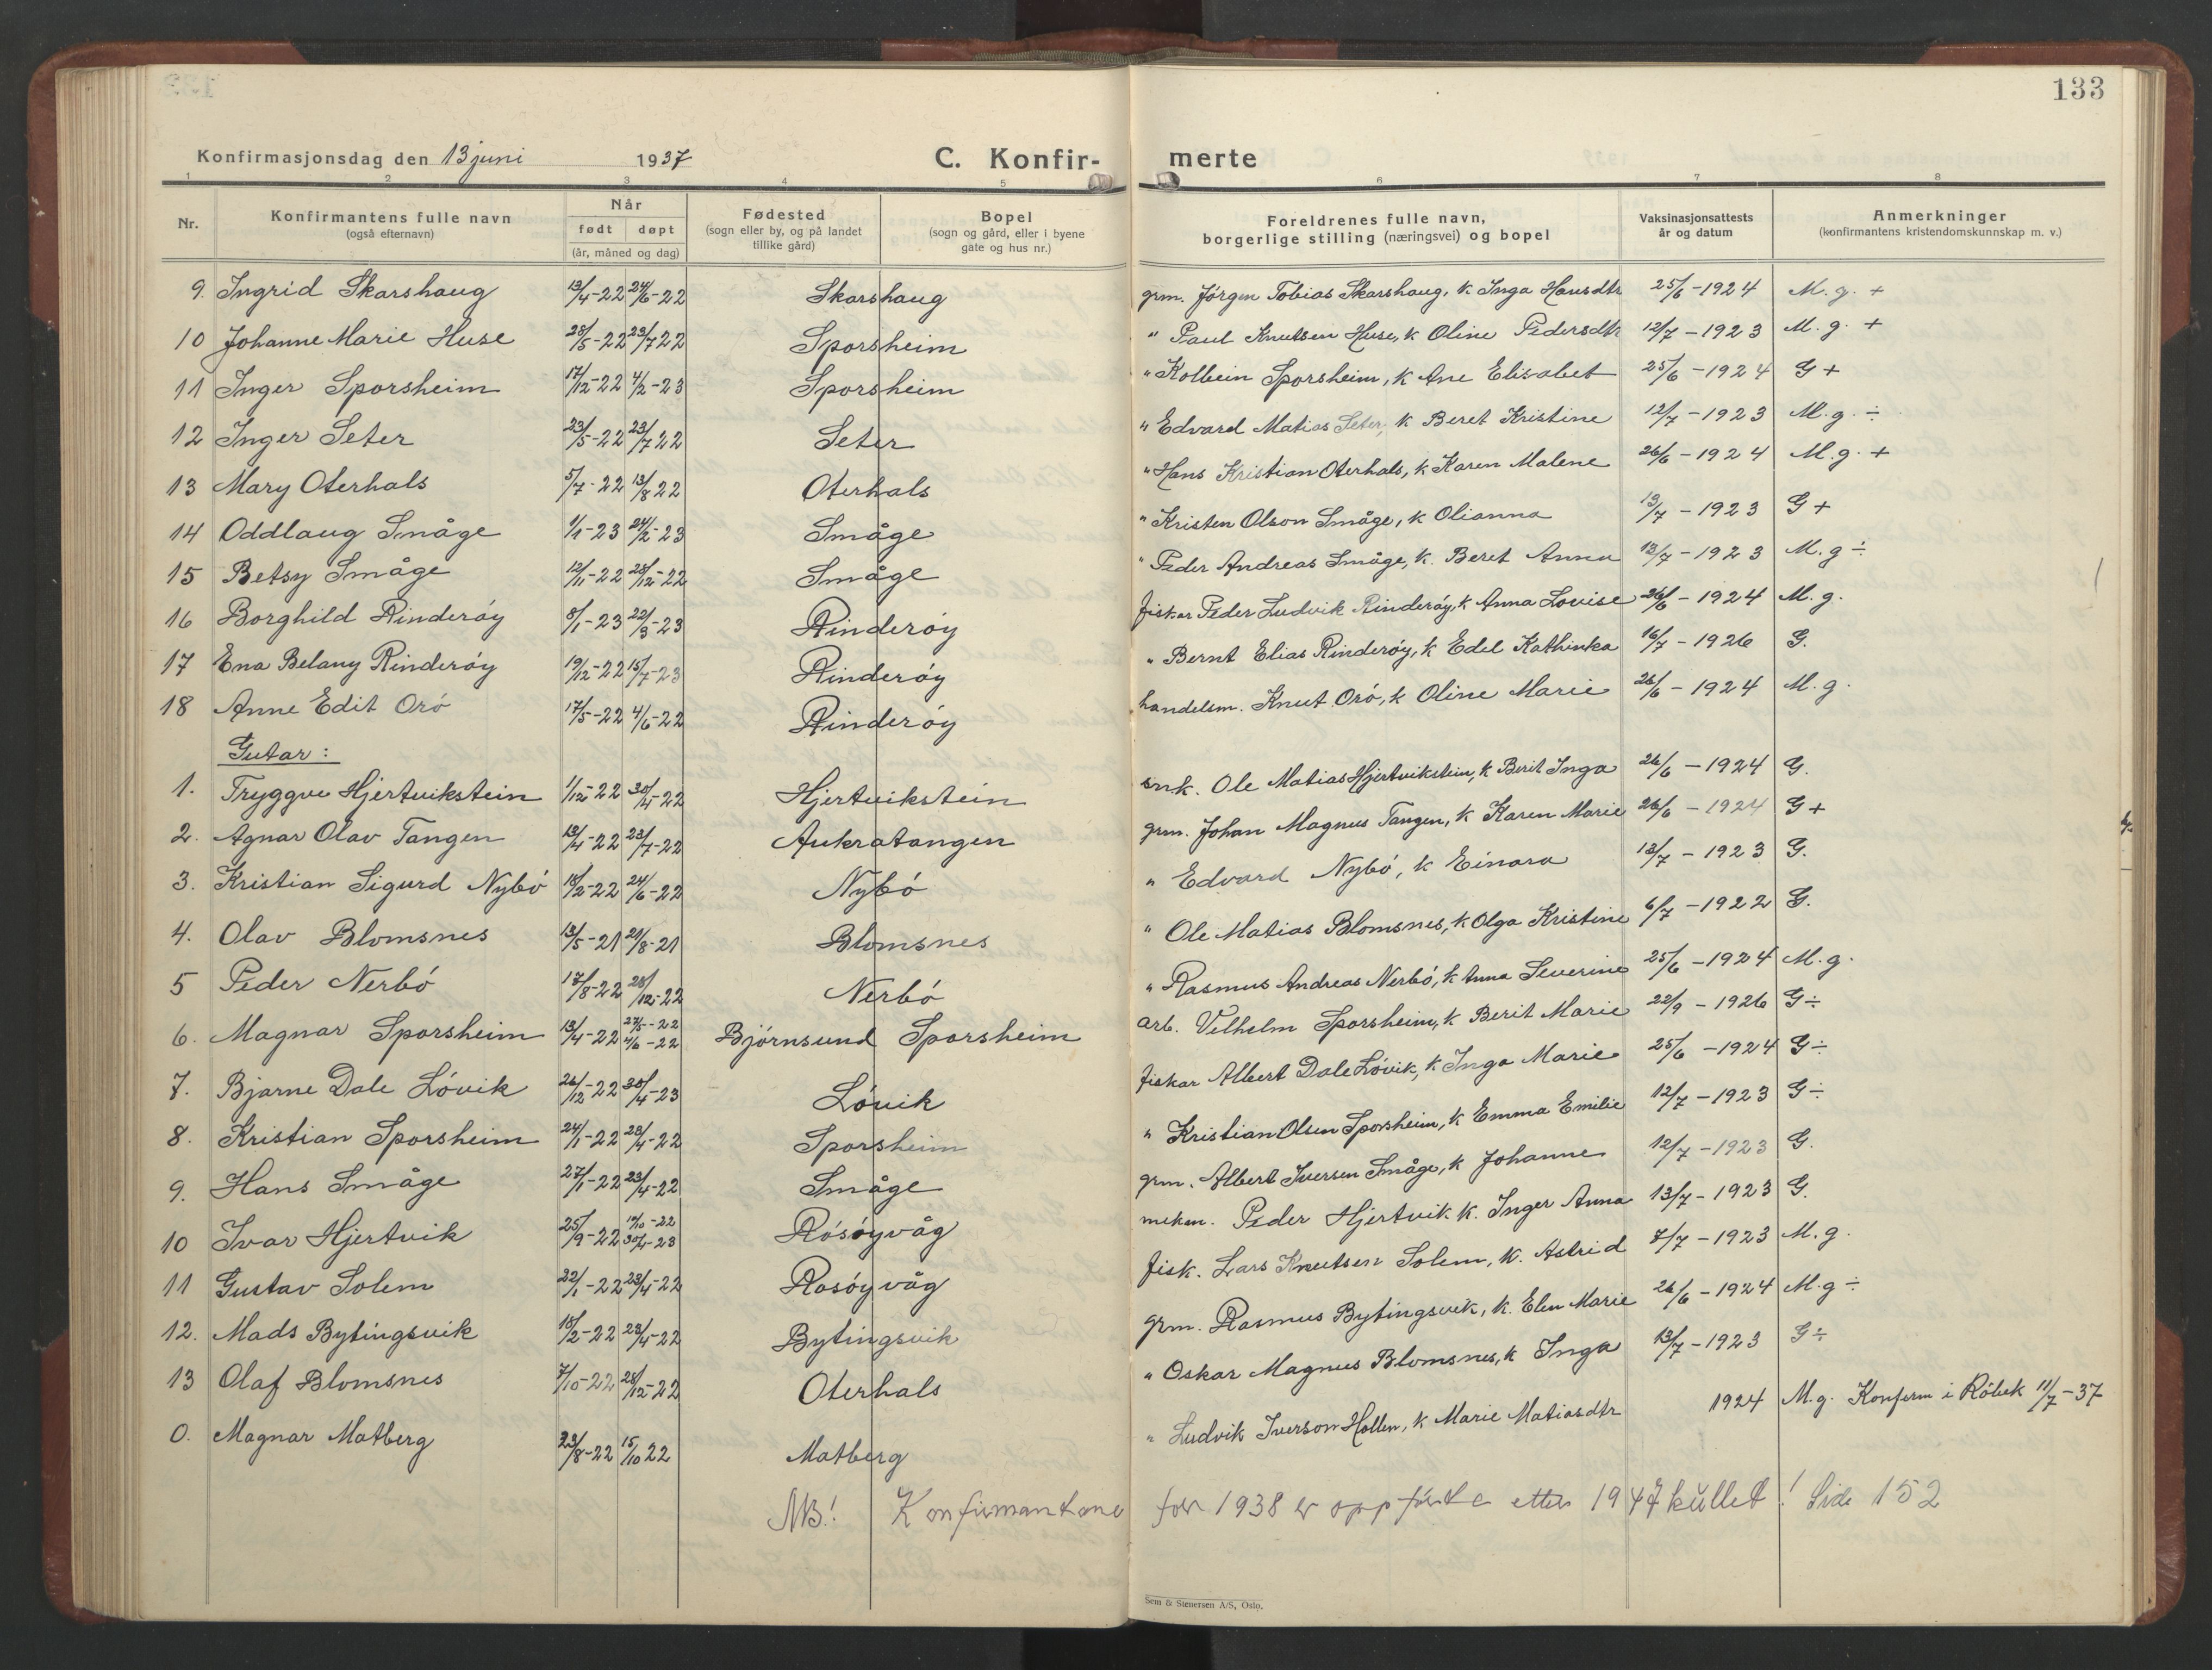 133
Konfirmasjonsdag den 13 juni 1937 C. Konfir- merte
1 2 3 4 5 6 7 8
Nr. Konfirmantens fulle navn (også efternavn) Når født døpt (år, måned og dag) Fødested (sogn eller by, og på landet tillike gård) Bopel (sogn og gård, eller i byene gate og hus nr.) Foreldrenes fulle navn, borgerlige stilling (næringsvei) og bopel Vaksinasjonsattests år og datum Anmerkninger (konfirmantens kristendomskunnskap m. v.)
9. Ingrid Skarshaug 13/4-22 24/6-22 Skarshaug grm. Jörgen Tobias Skarshaug, k Inga Hansdtr 25/6-1924 M.g. +
10 Johanne Marie Huse 28/5-22 23/7 22 Sporsheim " Paul Knutsen Huse, k Oline Pedersdtr 12/7-1923 M.g. +
11 Inger Sporsheim 17/12-22 4/2-23 Sporsheim " Kolbein Sporsheim, k Ane Elisabet 25/6-1924 G +
12 Inger Seter 23/5-22 23/7 22 Seter " Edvard Matias Seter, k Beret Kristine 12/7-1923 M.g. ÷
13 Mary Oterhals 5/7-22 13/8 22 Oterhals " Hans Kristian Oterhals, k Karen Malene 26/6-1924 M.g. +
14 Oddlaug Småge 1/1-23 24/2-23 Småge " Kristen Olson Småge, k Olianna 13/7-1923 G +
15 Betsy Småge 12/11-22 28/12-22 Småge " Peder Andreas Småge, k. Beret Anna 13/7-1923 M.g ÷
16 Borghild Rinderöy 8/1-23 22/3-23 Rinderöy fiskar Peder Ludvik Rinderöy, k Anna Lovise 26/6-1924 M.g.
17 Ena Belany Rinderöy 19/12-22 15/7-23 Rinderöy " Bernt Elias Rinderöy, k Edel Kathinka 16/7-1926 G.
18 Anne Edit Orö 17/5-22 4/6-22 Rinderöy handelsm. Knut Orö, k Oline Marie 26/6-1924 M.g.
Gutar:
1. Tryggve Hjertvikstein 1/12-22 30/4-22 Hjertvikstein snk. Ole Matias Hjertvikstein, k Berit Inga 26/6-1924 G.
2. Agnar Olav Tangen 13/4-22 23/7-22 Aukratangen grm. Johan Magnus Tangen, k Karen Marie 26/6-1924 G +
3. Kristian Sigurd Nybö 18/2-22 24/6-22 Nybö " Edvard Nybö, k Einara 13/7-1923 G.
4. Olav Blomsnes 13/5-21 21/8-21 Blomsnes " Ole Matias Blomsnes, k Olga Kristine 6/7-1922 G.
5 Peder Nerbö 17/8-22 28/12-22 Nerbö " Rasmus Andreas Nerbö, k Anna Severine 25/6-1924 M.g.
6. Magnar Sporsheim 13/4-22 27/5-22 4/6-22 Björnsund Sporsheim arb. Vilhelm Sporsheim, k Berit Marie 22/9-1926 G ÷
7. Bjarne Dale Lövik 26/12-22 30/4-23 Lövik fiskar Albert Dale Lövik, k Inga Marie 25/6-1924 G ÷
8. Kristian Sporsheim 24/1-22 23/4-22 Sporsheim " Kristian Olsen Sporsheim, k Emma Emilie 12/7-1923 G ÷
9. Hans Småge 27/1-22 23/4-22 Småge grm. Albert Iversen Småge, k Johanne 12/7-1923 G.
10 Ivar Hjertvik 25/9-22 10/10-22 30/4-23 Rösöyvåg mekan. Peder Hjertvik k. Inger Anna 13/7-1923 G.
11 Gustav Solem 22/1-22 23/4-22 Rosöyvåg fisk. Lars Knutsen Solem, k. Astrid 7/7-1923 M.g.
12. Mads Bytingsvik 18/2-22 23/4-22 Bytingsvik grm. Rasmus Bytingsvik, k. Elen Marie 26/6-1924 M.g ÷
13 Olaf Blomsnes 7/10-22 28/12-22 Oterhals " Oskar Magnus Blomsnes, k Inga 13/7-1923 G ÷
0. Magnar Matberg 23/8-22 15/10 22 Matberg " Ludvik Iverson Hollen, k Marie Matiasdtr 1924 M.g. Konferm i Röbek 11/7-37
NB! Konfirmantane for 1938 er oppförte etter 1947 kullet! Side 152
Sem & Stenersen A/S, Oslo.